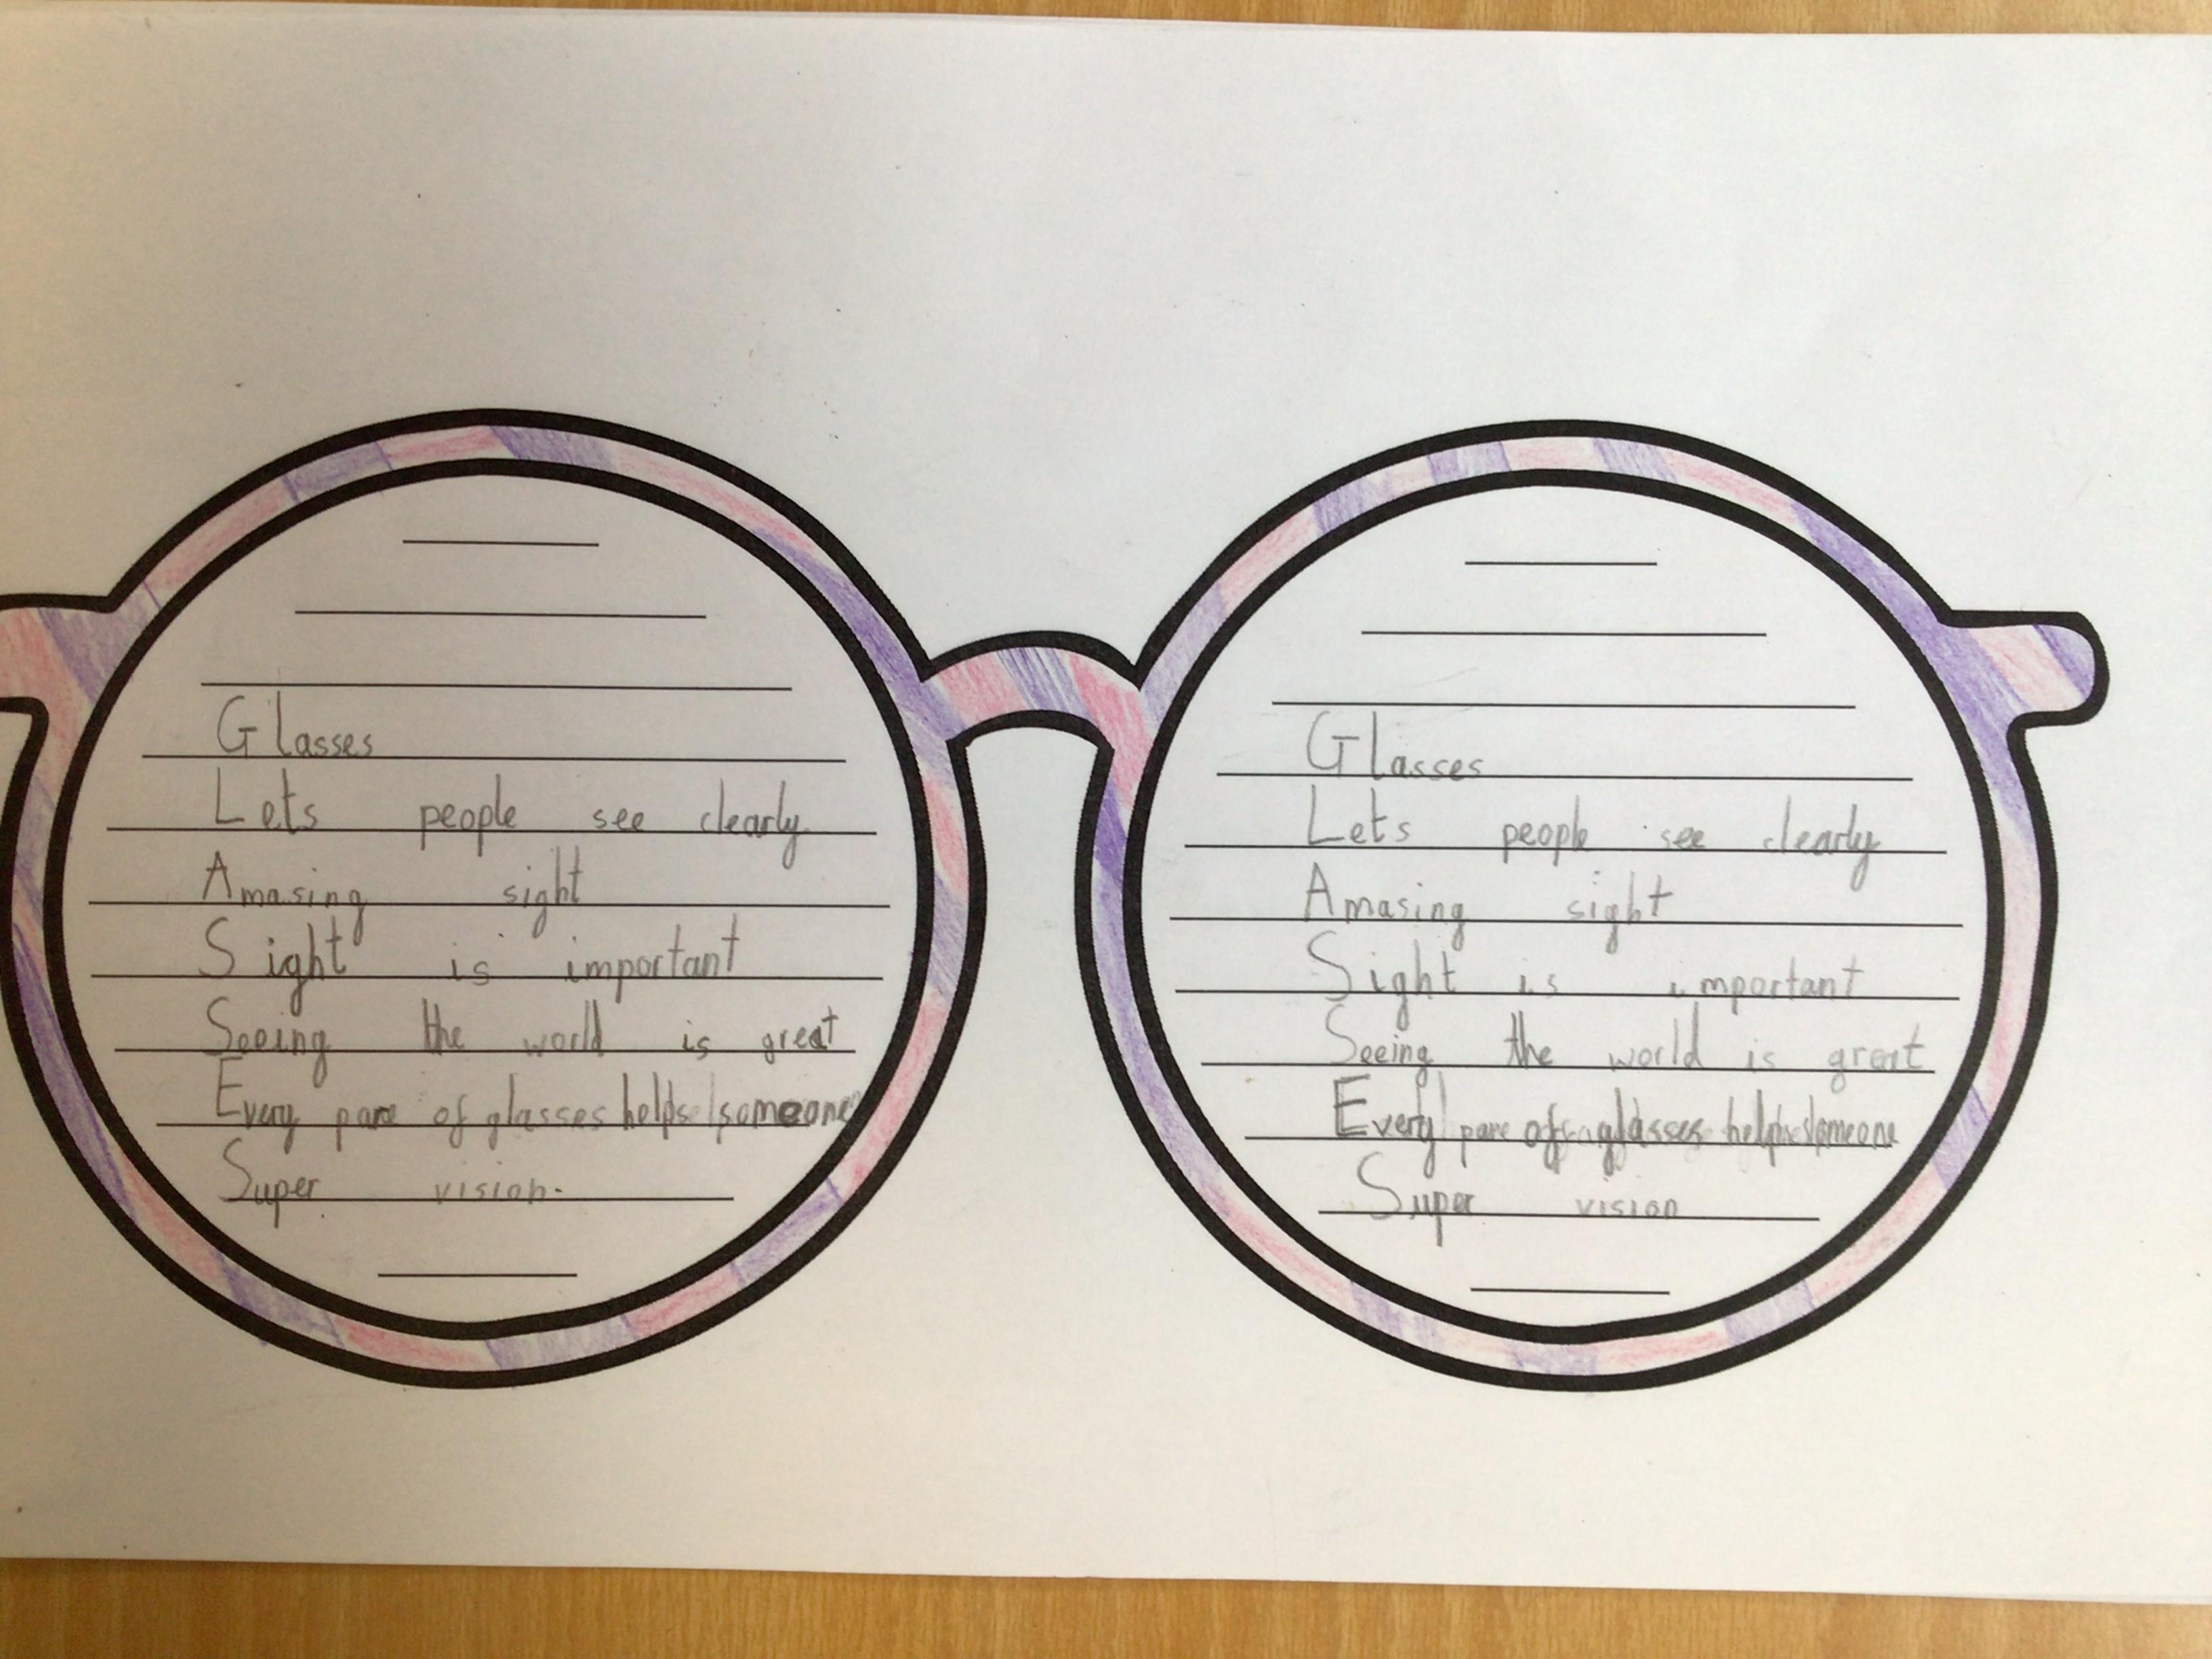 Glasses
Lets people see clearly
Amasing sight
Sight is important
Seeing the world is great
Every pare of glasses helps someone
Super vision.
Glasses
Lets people see clearly
Amasing sight
Sight is important
Seeing the world is great
Every pare of glasses helps someone
Super vision